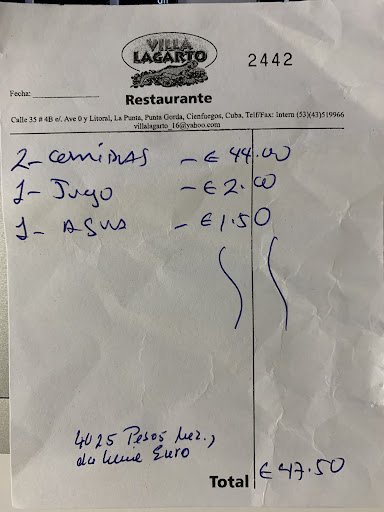 VILLA
LAGARTO
2442
Restaurante
Fecha:
Calle 35 # 4B e/. Ave 0 y Litoral, La Punta, Punta Gorda, Cienfuegos, Cuba, Telf/Fax: Intern (53)(43)519966
villalagarto_16@yahoo.com
2 - comidas - € 44.00
1 - Jugo - € 2.00
1 - AGUA - € 1.50
4025 Pesos
Euro
Total € 47.50